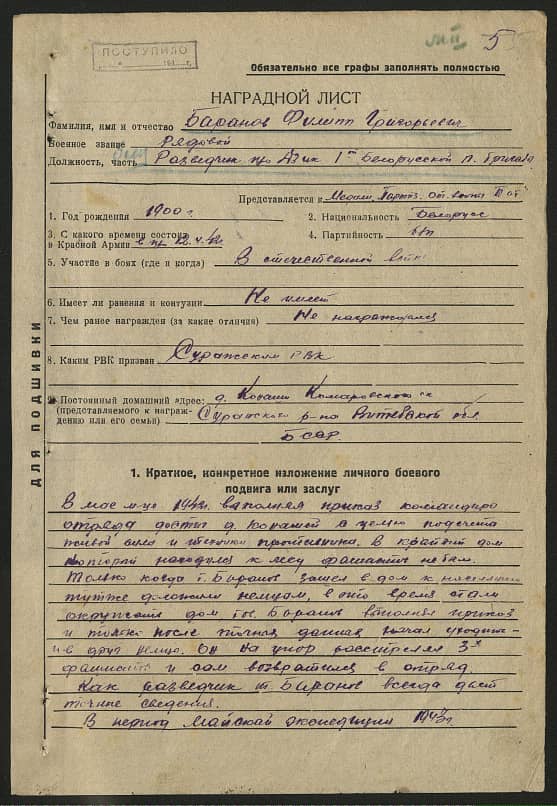 5
ПОСТУПИЛО
Обязательно все графы заполнять полностью
НАГРАДНОЙ ЛИСТ
Фамилия, имя и отчество Баранов Филипп Григорьевич
Военное звание Рядовой
Должность, часть Разведчик 1й Белорусской п. бригады
Представляется к Медали Партиз. От. войны II ст
1. Год рождения 1900 г. 2. Национальность Белорус
3. С какого времени состоит 4. Партийность б/п
в Красной Армии в пр.
5. Участие в боях (где и когда) В отечественной войне
6. Имеет ли ранения и контузии Не имеет
7. Чем ранее награжден (за какие отличия) Не награждался
8. Каким РВК призван Суражским РВК
9. Постоянный домашний адрес: д. Комаровского с/с
(представляемого к награж- Суражского р-на Витебской обл.
дению или его семьи) БССР
ДЛЯ ПОДШИВКИ
1. Краткое, конкретное изложение личного боевого
подвига или заслуг
В мае м-це выполняя приказ командира
отряда д. с целью подсчета
живой силы и техники противника. В крайний дом
который находился к лесу фашисты
Только когда т. Баранов зашел в дом к
тут же доложили немцам, в это время стали
окружать дом тов. Баранов выполняя приказ
и только после данная начал уходить
Он на упор расстрелял 3х
фашистов и сам возвратился в отряд.
Как разведчик т. Баранов всегда дает
точные сведения.
В период Майской экспедиции 1943г.